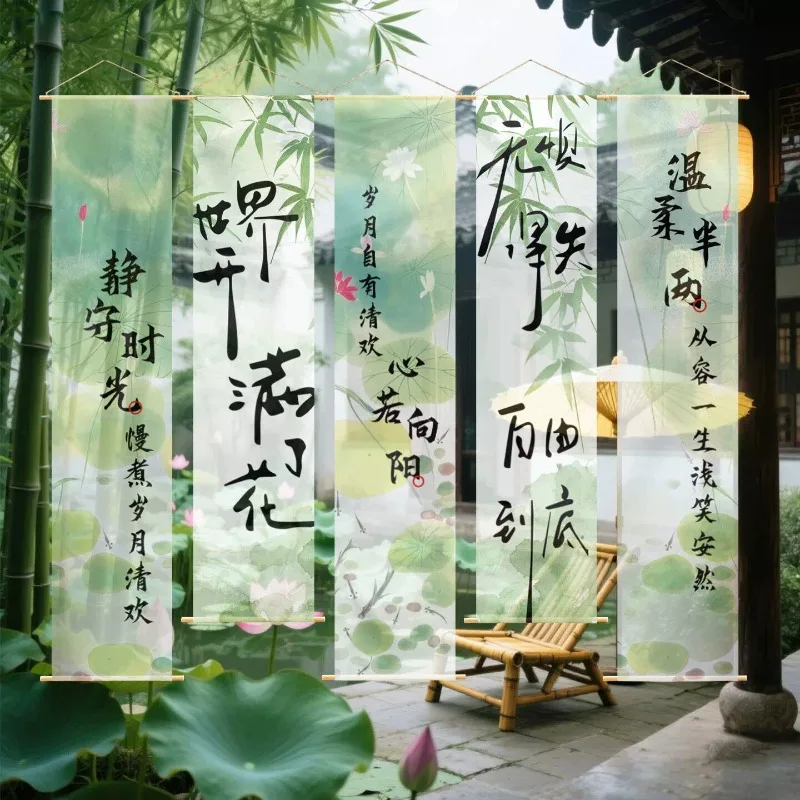 静守时光
慢煮岁月清欢
世界
开
满了
花
岁月自有清欢
心若向阳
无惧
得失
自由
到底
温柔半两
从容一生浅笑安然